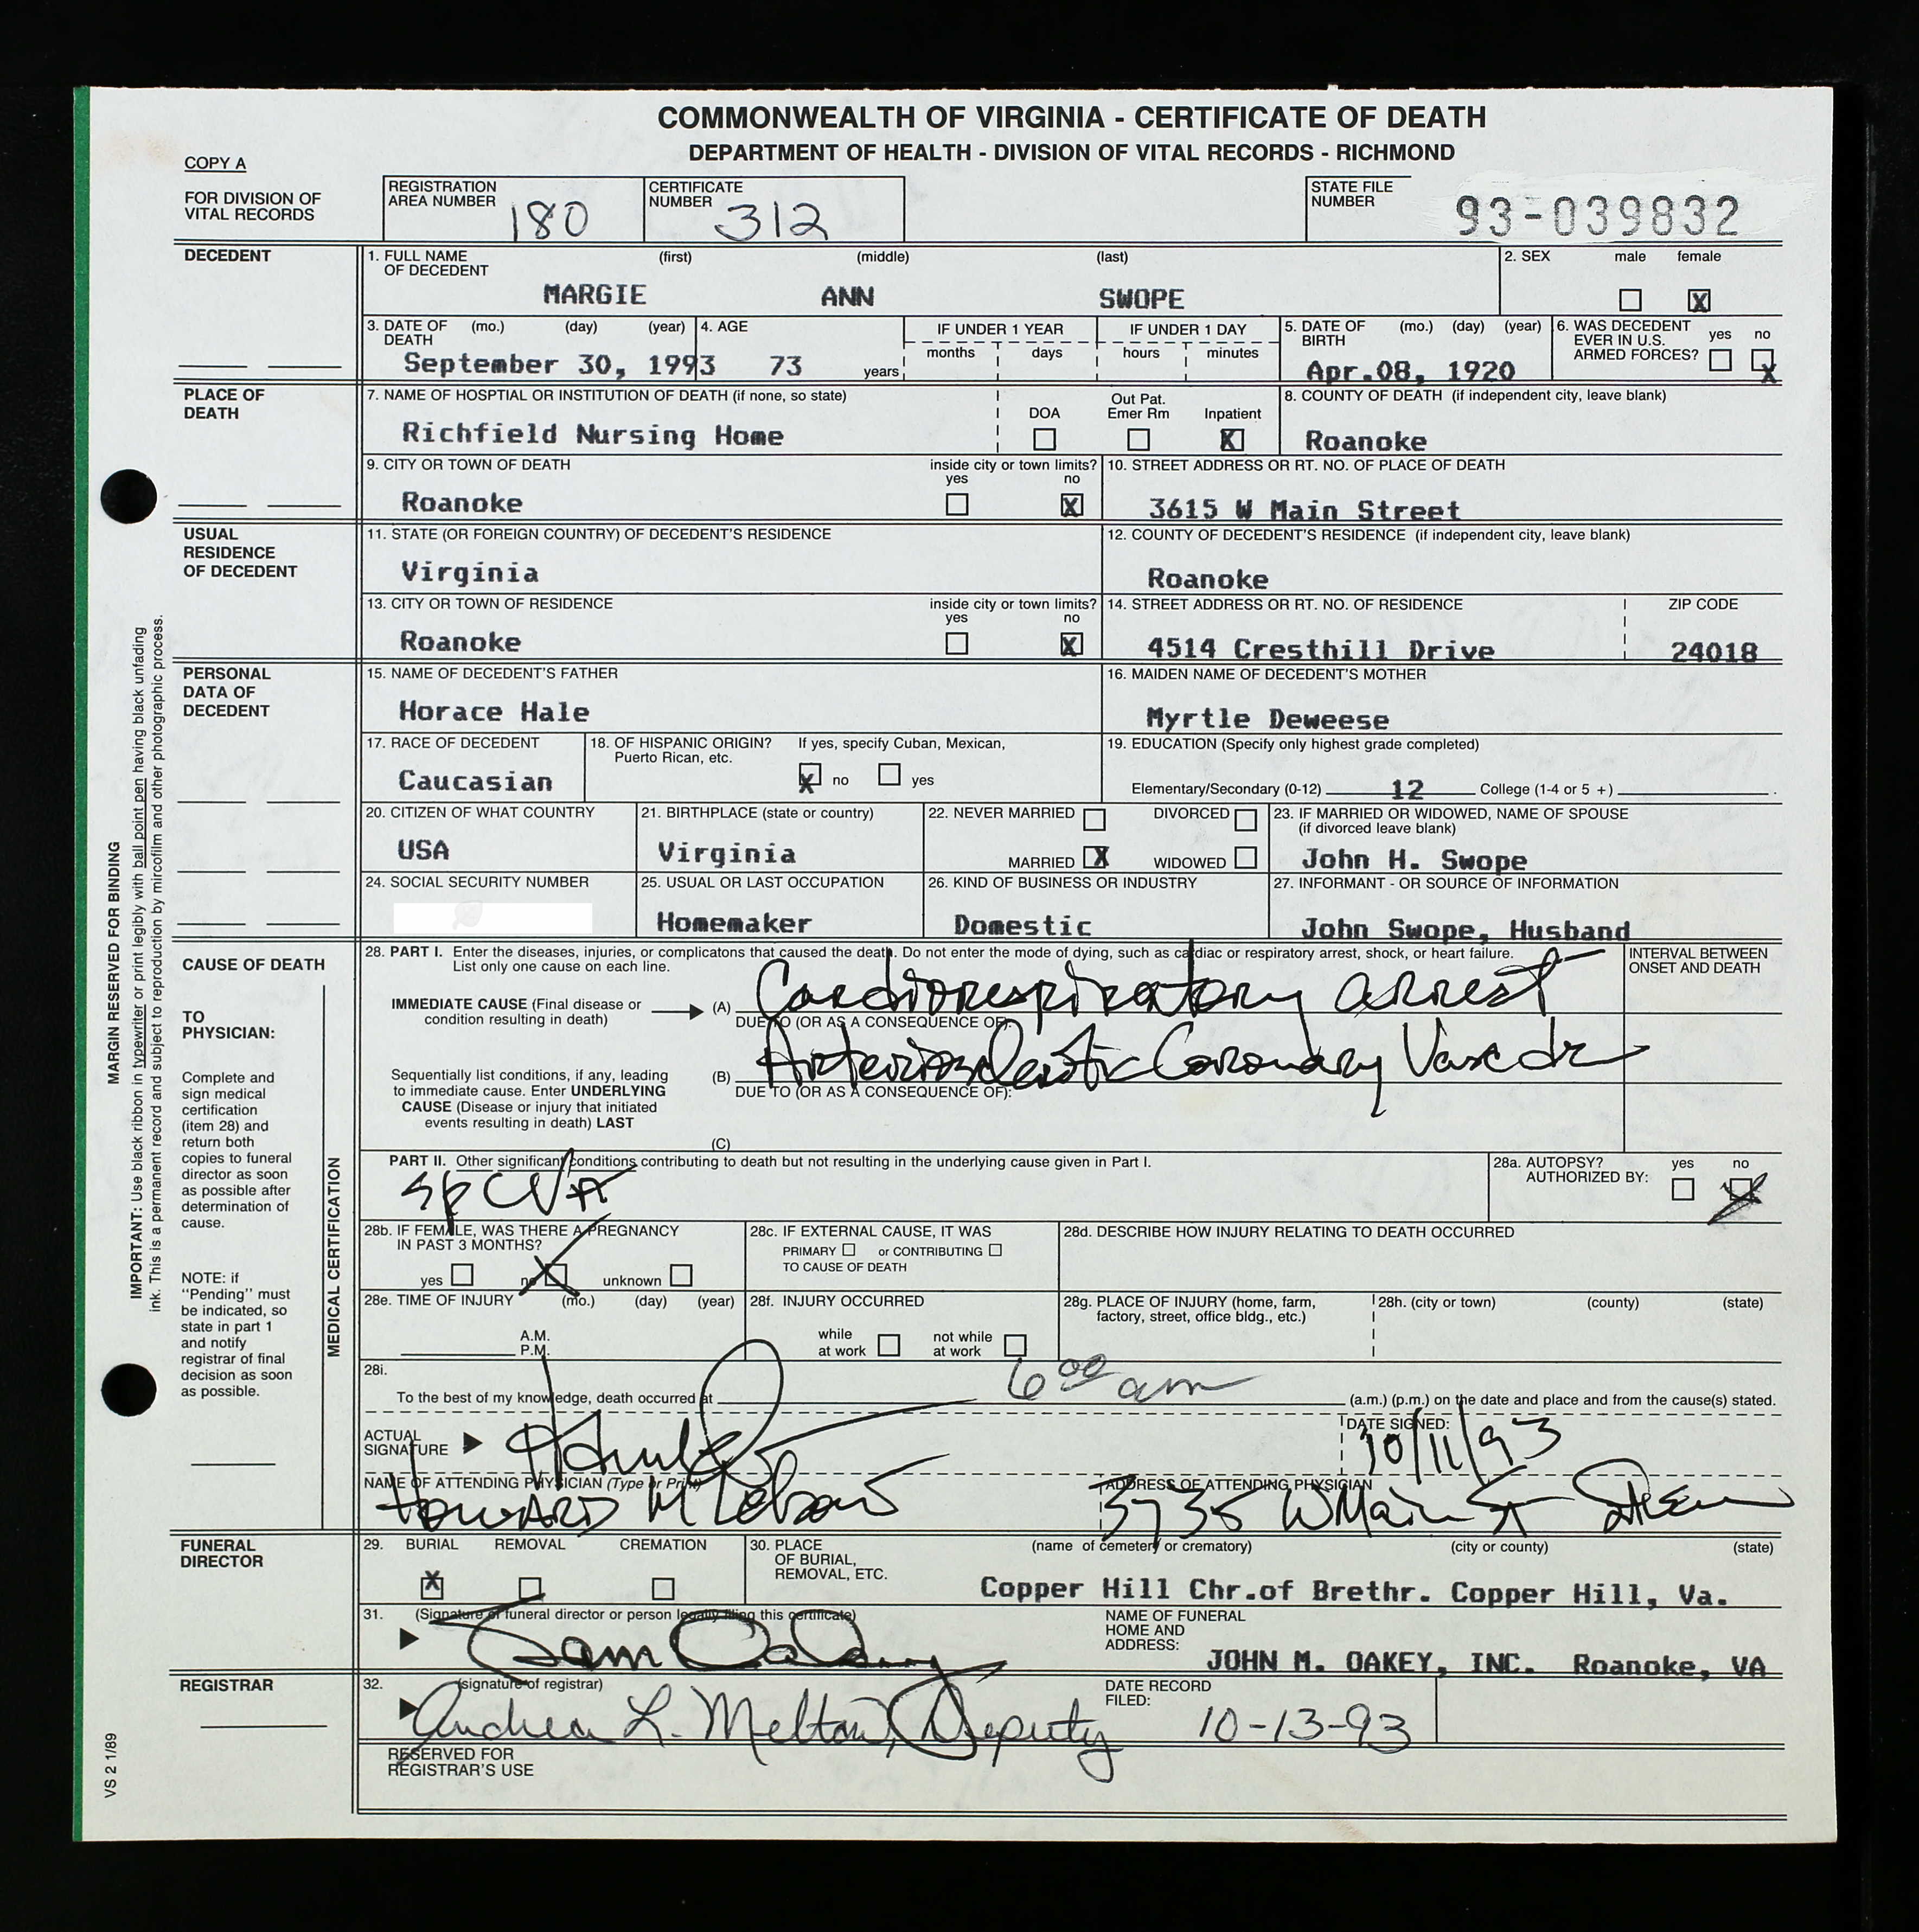 COMMONWEALTH OF VIRGINIA - CERTIFICATE OF DEATH
DEPARTMENT OF HEALTH - DIVISION OF VITAL RECORDS - RICHMOND
COPY A
FOR DIVISION OF VITAL RECORDS
REGISTRATION AREA NUMBER 180
CERTIFICATE NUMBER 312
STATE FILE NUMBER 93-039832
DECEDENT
1. FULL NAME OF DECEDENT (first) (middle) (last)
MARGIE ANN SWOPE
2. SEX male female X
3. DATE OF DEATH (mo.) (day) (year)
September 30, 1993
4. AGE 73 years
IF UNDER 1 YEAR months days
IF UNDER 1 DAY hours minutes
5. DATE OF BIRTH (mo.) (day) (year)
Apr.08, 1920
6. WAS DECEDENT EVER IN U.S. ARMED FORCES? yes no X
PLACE OF DEATH
7. NAME OF HOSPTIAL OR INSTITUTION OF DEATH (if none, so state)
Richfield Nursing Home
DOA Out Pat. Emer Rm Inpatient X
8. COUNTY OF DEATH (if independent city, leave blank)
Roanoke
9. CITY OR TOWN OF DEATH
Roanoke
inside city or town limits? yes no X
10. STREET ADDRESS OR RT. NO. OF PLACE OF DEATH
3615 W Main Street
USUAL RESIDENCE OF DECEDENT
11. STATE (OR FOREIGN COUNTRY) OF DECEDENT'S RESIDENCE
Virginia
12. COUNTY OF DECEDENT'S RESIDENCE (if independent city, leave blank)
Roanoke
13. CITY OR TOWN OF RESIDENCE
Roanoke
inside city or town limits? yes no X
14. STREET ADDRESS OR RT. NO. OF RESIDENCE ZIP CODE
4514 Cresthill Drive 24018
PERSONAL DATA OF DECEDENT
15. NAME OF DECEDENT'S FATHER
Horace Hale
16. MAIDEN NAME OF DECEDENT'S MOTHER
Myrtle Deweese
17. RACE OF DECEDENT
Caucasian
18. OF HISPANIC ORIGIN? If yes, specify Cuban, Mexican, Puerto Rican, etc.
X no yes
19. EDUCATION (Specify only highest grade completed)
Elementary/Secondary (0-12) 12 College (1-4 or 5 +)
20. CITIZEN OF WHAT COUNTRY
USA
21. BIRTHPLACE (state or country)
Virginia
22. NEVER MARRIED DIVORCED
MARRIED X WIDOWED
23. IF MARRIED OR WIDOWED, NAME OF SPOUSE (if divorced leave blank)
John H. Swope
24. SOCIAL SECURITY NUMBER
25. USUAL OR LAST OCCUPATION
Homemaker
26. KIND OF BUSINESS OR INDUSTRY
Domestic
27. INFORMANT - OR SOURCE OF INFORMATION
John Swope, Husband
CAUSE OF DEATH
28. PART I. Enter the diseases, injuries, or complicatons that caused the death. Do not enter the mode of dying, such as cardiac or respiratory arrest, shock, or heart failure.
List only one cause on each line.
INTERVAL BETWEEN ONSET AND DEATH
IMMEDIATE CAUSE (Final disease or condition resulting in death)
(A) Cardiorespiratory arrest
DUE TO (OR AS A CONSEQUENCE OF):
Sequentially list conditions, if any, leading to immediate cause. Enter UNDERLYING CAUSE (Disease or injury that initiated events resulting in death) LAST
(B) Arteriosclerotic Coronary Vasc dz
DUE TO (OR AS A CONSEQUENCE OF):
(C)
PART II. Other significant conditions contributing to death but not resulting in the underlying cause given in Part I.
SP CVA
28a. AUTOPSY? AUTHORIZED BY: yes no
28b. IF FEMALE, WAS THERE A PREGNANCY IN PAST 3 MONTHS?
yes no unknown
28c. IF EXTERNAL CAUSE, IT WAS
PRIMARY or CONTRIBUTING
TO CAUSE OF DEATH
28d. DESCRIBE HOW INJURY RELATING TO DEATH OCCURRED
28e. TIME OF INJURY (mo.) (day) (year)
A.M.
P.M.
28f. INJURY OCCURRED
while at work not while at work
28g. PLACE OF INJURY (home, farm, factory, street, office bldg., etc.)
28h. (city or town) (county) (state)
28i.
To the best of my knowledge, death occurred at 6 00 am (a.m.) (p.m.) on the date and place and from the cause(s) stated.
ACTUAL SIGNATURE
DATE SIGNED: 10/11/93
NAME OF ATTENDING PHYSICIAN (Type or Print)
HOWARD M Lebow
ADDRESS OF ATTENDING PHYSICIAN
3735 W Main St
TO PHYSICIAN:
Complete and sign medical certification (item 28) and return both copies to funeral director as soon as possible after determination of cause.
NOTE: if "Pending" must be indicated, so state in part 1 and notify registrar of final decision as soon as possible.
MEDICAL CERTIFICATION
FUNERAL DIRECTOR
29. BURIAL X REMOVAL CREMATION
30. PLACE OF BURIAL, REMOVAL, ETC. (name of cemetery or crematory) (city or county) (state)
Copper Hill Chr.of Brethr. Copper Hill, Va.
31. (Signature of funeral director or person legally filing this certificate)
Sam Oakey
NAME OF FUNERAL HOME AND ADDRESS:
JOHN M. OAKEY, INC. Roanoke, VA
REGISTRAR
32. (signature of registrar)
Andrea L. Melton, Deputy
DATE RECORD FILED: 10-13-93
RESERVED FOR REGISTRAR'S USE
MARGIN RESERVED FOR BINDING
IMPORTANT: Use black ribbon in typewriter or print legibly with ball point pen having black unfading
ink. This is a permanent record and subject to reproduction by mircofilm and other photographic process.
VS 2 1/89